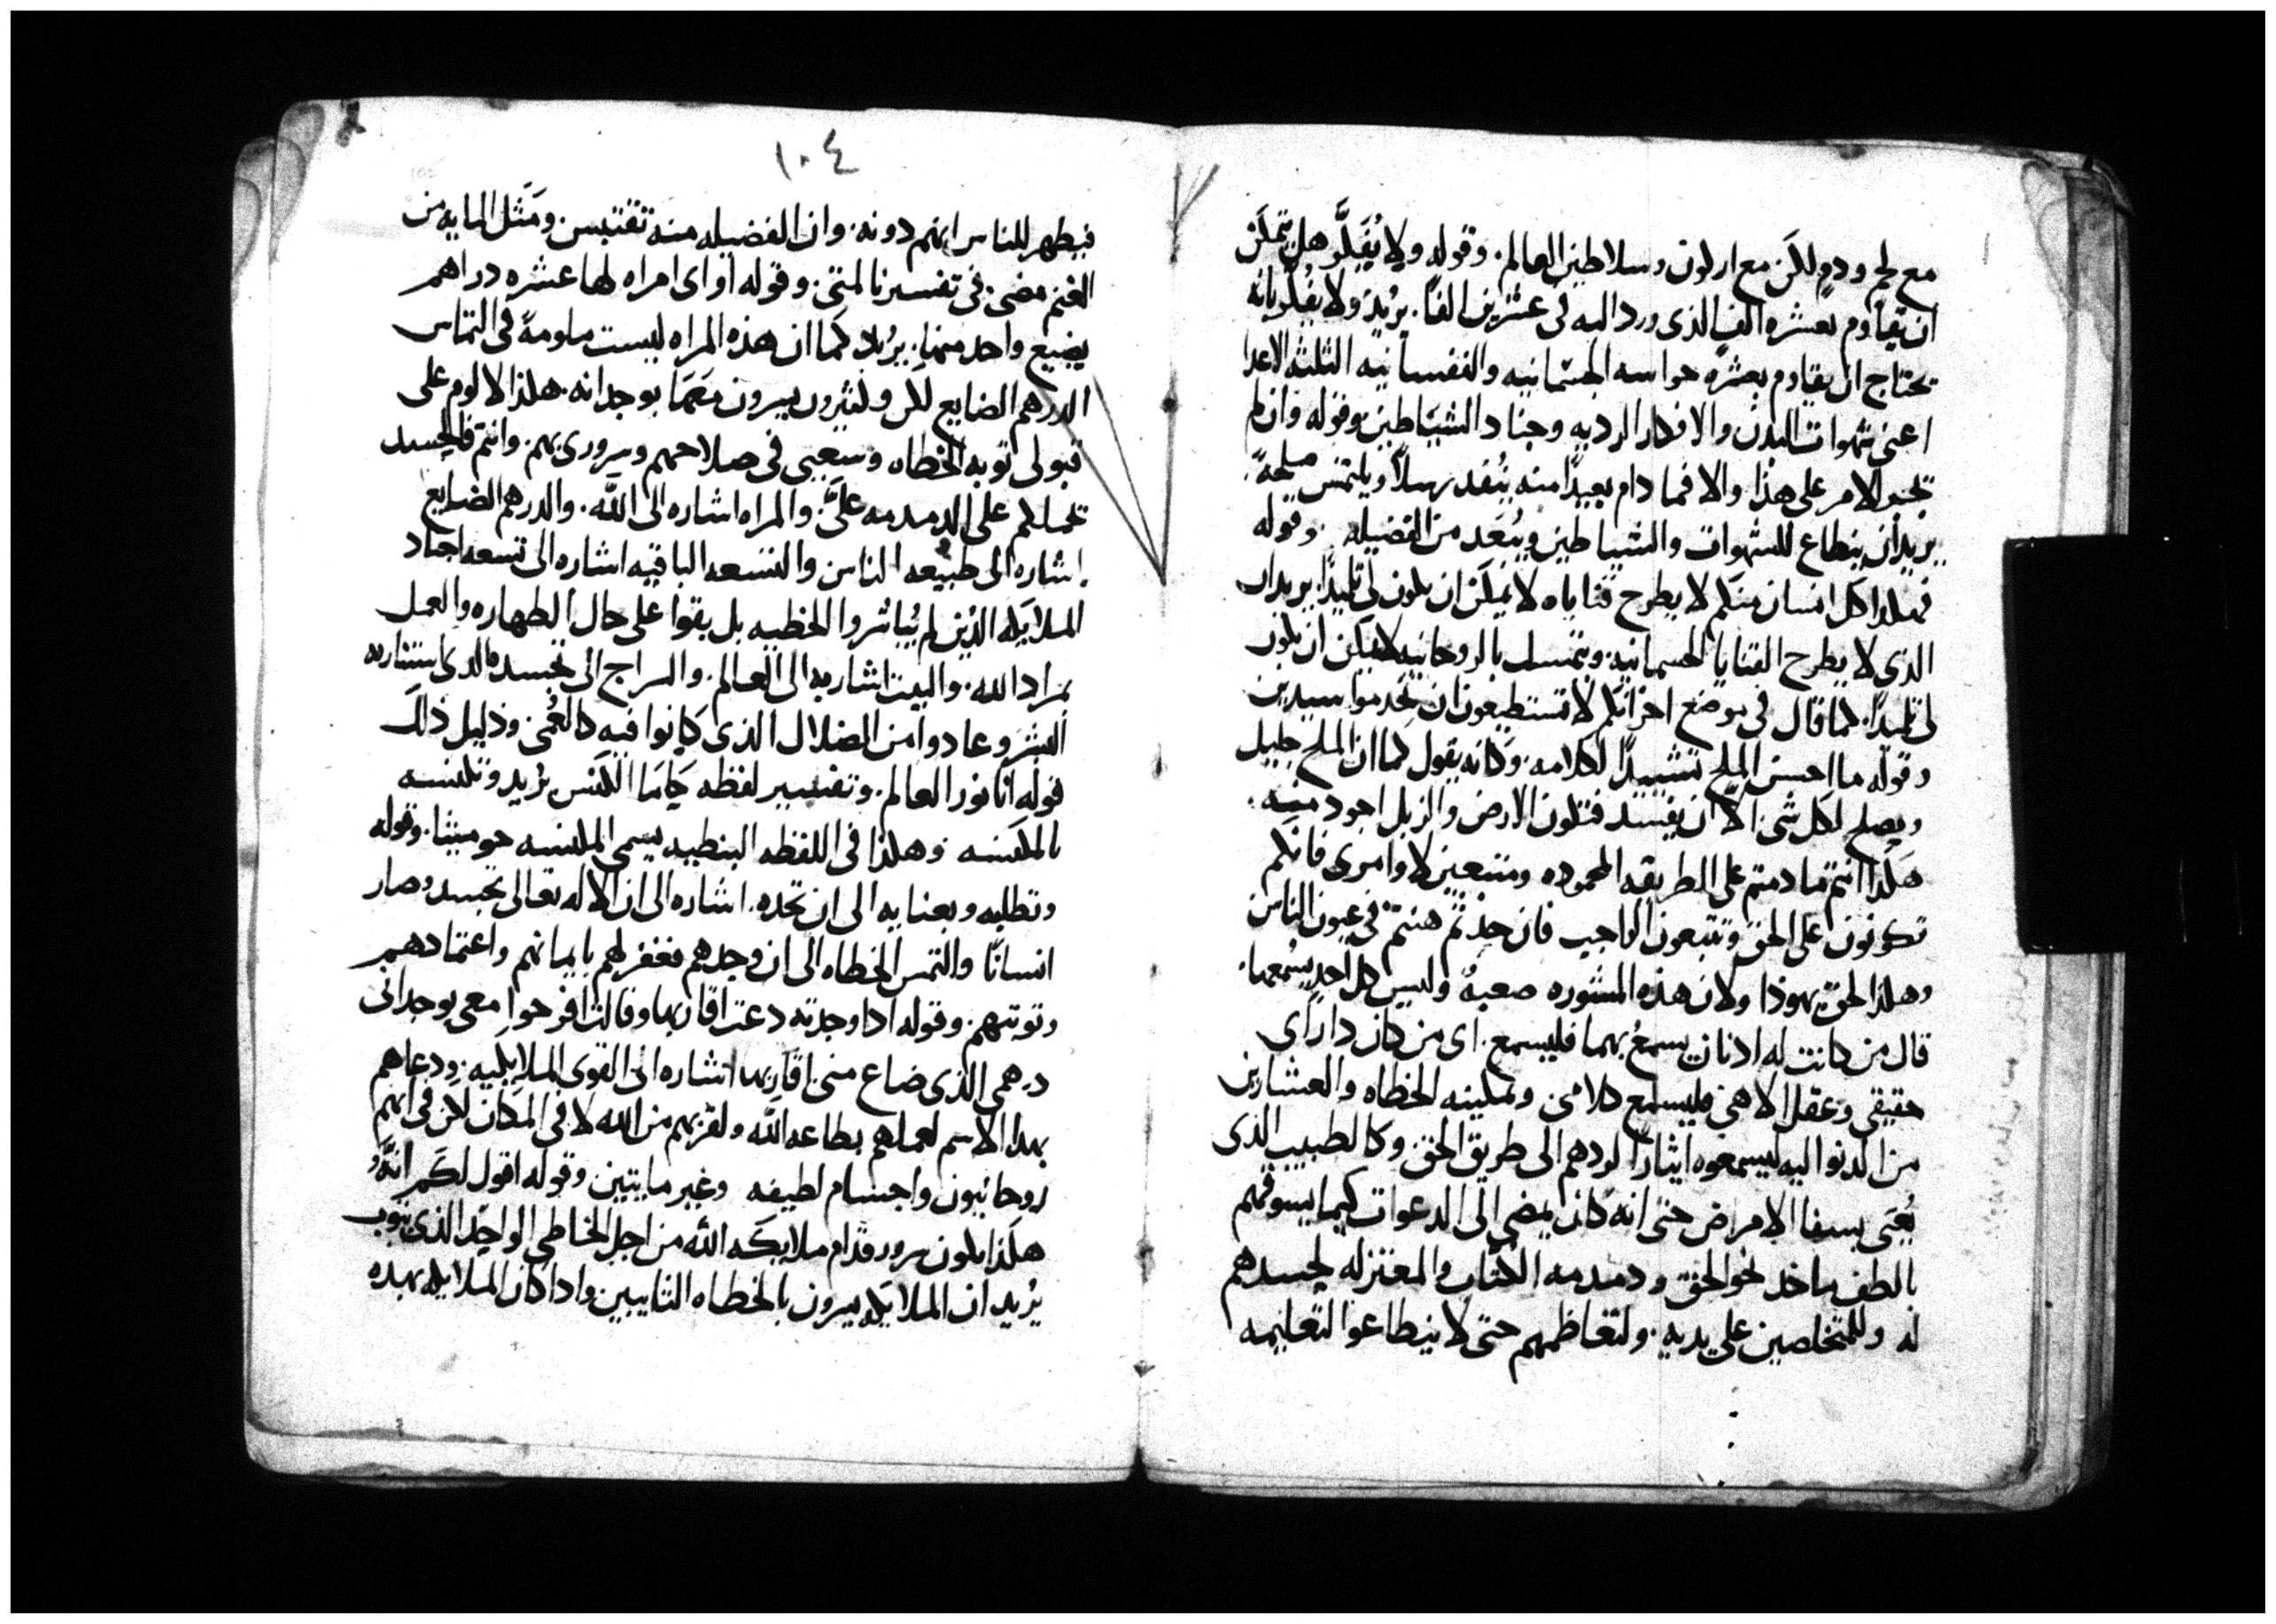 مع لحم ودم لكن مع اركون وسلاطين العالم. وقوله ولا يُفكَّر هل يتمكن
ان يقاوم بعشره الف الذى ورد اليه فى عشرين الفًا. يريد ولا يفكر بانه
يحتاج ان يقاوم بعشره حواسه الجسمانيه والنفسانيه الثلثه الاعدا
اعنى شهوات البدن والافكار الرديه وجناد الشياطين وقوله وان لم
يجبر الامر على هذا والا فما دام بعيدًا منه ينفد رسلاً ويلتمس صلحه
يريد ان ينطاع للشهوات والشياطين ويبعد من الفضيله. وقوله
فهكذا كل انسان منكم لا يطرح قناياه لا يمكن ان يكون لى تلميذًا. يريد ان
الذى لا يطرح القنايا الجسمانيه. ويتمسك بالروحانيه لا يمكن ان يكون
لى تلميذًا. كما قال فى موضع اخر انكم لا تستطيعون ان تخدموا سيدين
وقوله ما احسن الملح تشييدًا لكلامه. وكانه يقول كما ان الملح جليل
ويصلح لكل شى الا ان يفسد فتكون الارض والزبل اجود منه.
هكذا انتم ما دمتم على الطريقه المحموده ومتبعين لاوامرى فانكم
تكونون على الحق وتتبعون الواجب فان حذتم هنتم فى عيون الناس
وهكذا لحق يهوذا ولان هذه المشوره صعبهٌ وليس كل احدٍ يسمعها.
قال من كانت له اذنان يسمعُ بهما فليسمع. اى من كان دا راى
حقيقى وعقل الاهى فليسمع كلامى وتمكينه الخطاه والعشارين
من الدنو اليه ليسمعوه ايثارًا لردهم الى طريق الحق وكالطبيب الذى
يُعنى بسفا الامراض حتى انه كان يمضى الى الدعوات كيما يسوقهم
بالطف ماخد نحو الحق ودمدمه الكتاب والمعتزله لحسدهم
له وللمتخلصين على يديه. ولتعاظمهم حتى لا ينطاعوا لتعليمه
١٠٤
فيظهر للناس انهم دونه. وان الفضيله منه تقتبس. ومَثَل المايه من
الغنم مضى فى تفسيرنا لمتى. وقوله او اى امراه لها عشره دراهم
يضيع واحد منها. يريد كما ان هذه المراه ليست ملومةً فى التماس
الدرهم الضايع لكن وكثيرون يسرون معها بوجدانه. هكذا لا لوم على
قبولى توبه الخطاه وسعيى فى صلاحهم وسرورى بهم. وانتم فالحسد
يحملكم على الدمدمه علىّ. والمراه اشاره الى الله. والدرهم الضايع
اشاره الى طبيعه الناس والتسعه الباقيه اشاره الى تسعه اجناد
الملايكه الذين لم يُباشروا الخطيه بل بقوا على حال الطهاره والعمل
بمراد الله. والبيت اشاربه الى العالم. والسراج الى تجسده الدى استناربه
البشر وعادوا من الضلال الذى كانوا فيه كالعُمى ودليل ذلك
قوله انا نور العالم. وتفسير لفظه حاما الكنس يريد وتكنسه
بالمكنسه وهكذا فى اللفظه النبطيه يسمى المكنسه حوميثا. وقوله
وتطلبه وبعنايه الى ان تجده. اشاره الى ان الاله تعالى تجسد وصار
انسانًا والتمس الخطاه الى ان وجدهم فغفر لهم بايمانهم واعتمادهم
وتوبتهم. وقوله ادا وجدته دعت اقاربها وقالت افرحوا معى بوجدانى
درهمى الذى ضاع منى اقاربها اشاره الى القوى الملايكيه. ودعاهم
بهدا الاسم لعملهم بطاعه الله ولقربهم من الله لا فى المكان لكن فى انهم
روحانيون واجسام لطيفه وغير مايتين وقوله اقول لكم انَّهُ
هكذا يكون سرور قدام ملايكه الله من اجل الخاطى الواحد الذى يتوب
يُريد ان الملايكه يسرون بالخطاه التايبين وادا كان الملايكه بهده